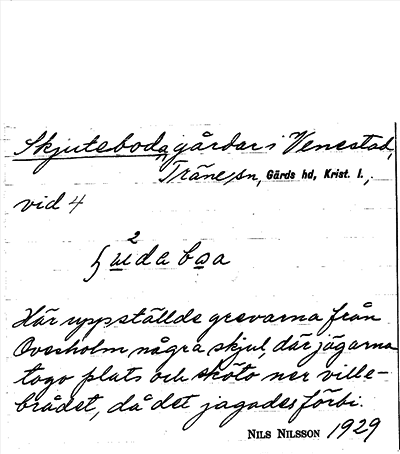 Skjutebod, gårdar i Venestad,
Träne sn, Gärds hd, Krist. l.,
vid 4
Här uppställde grevarna från
Ovesholm några skjul, där jägarna
togo plats och sköto ner ville-
brådet, då det jagades förbi.
NILS NILSSON 1929